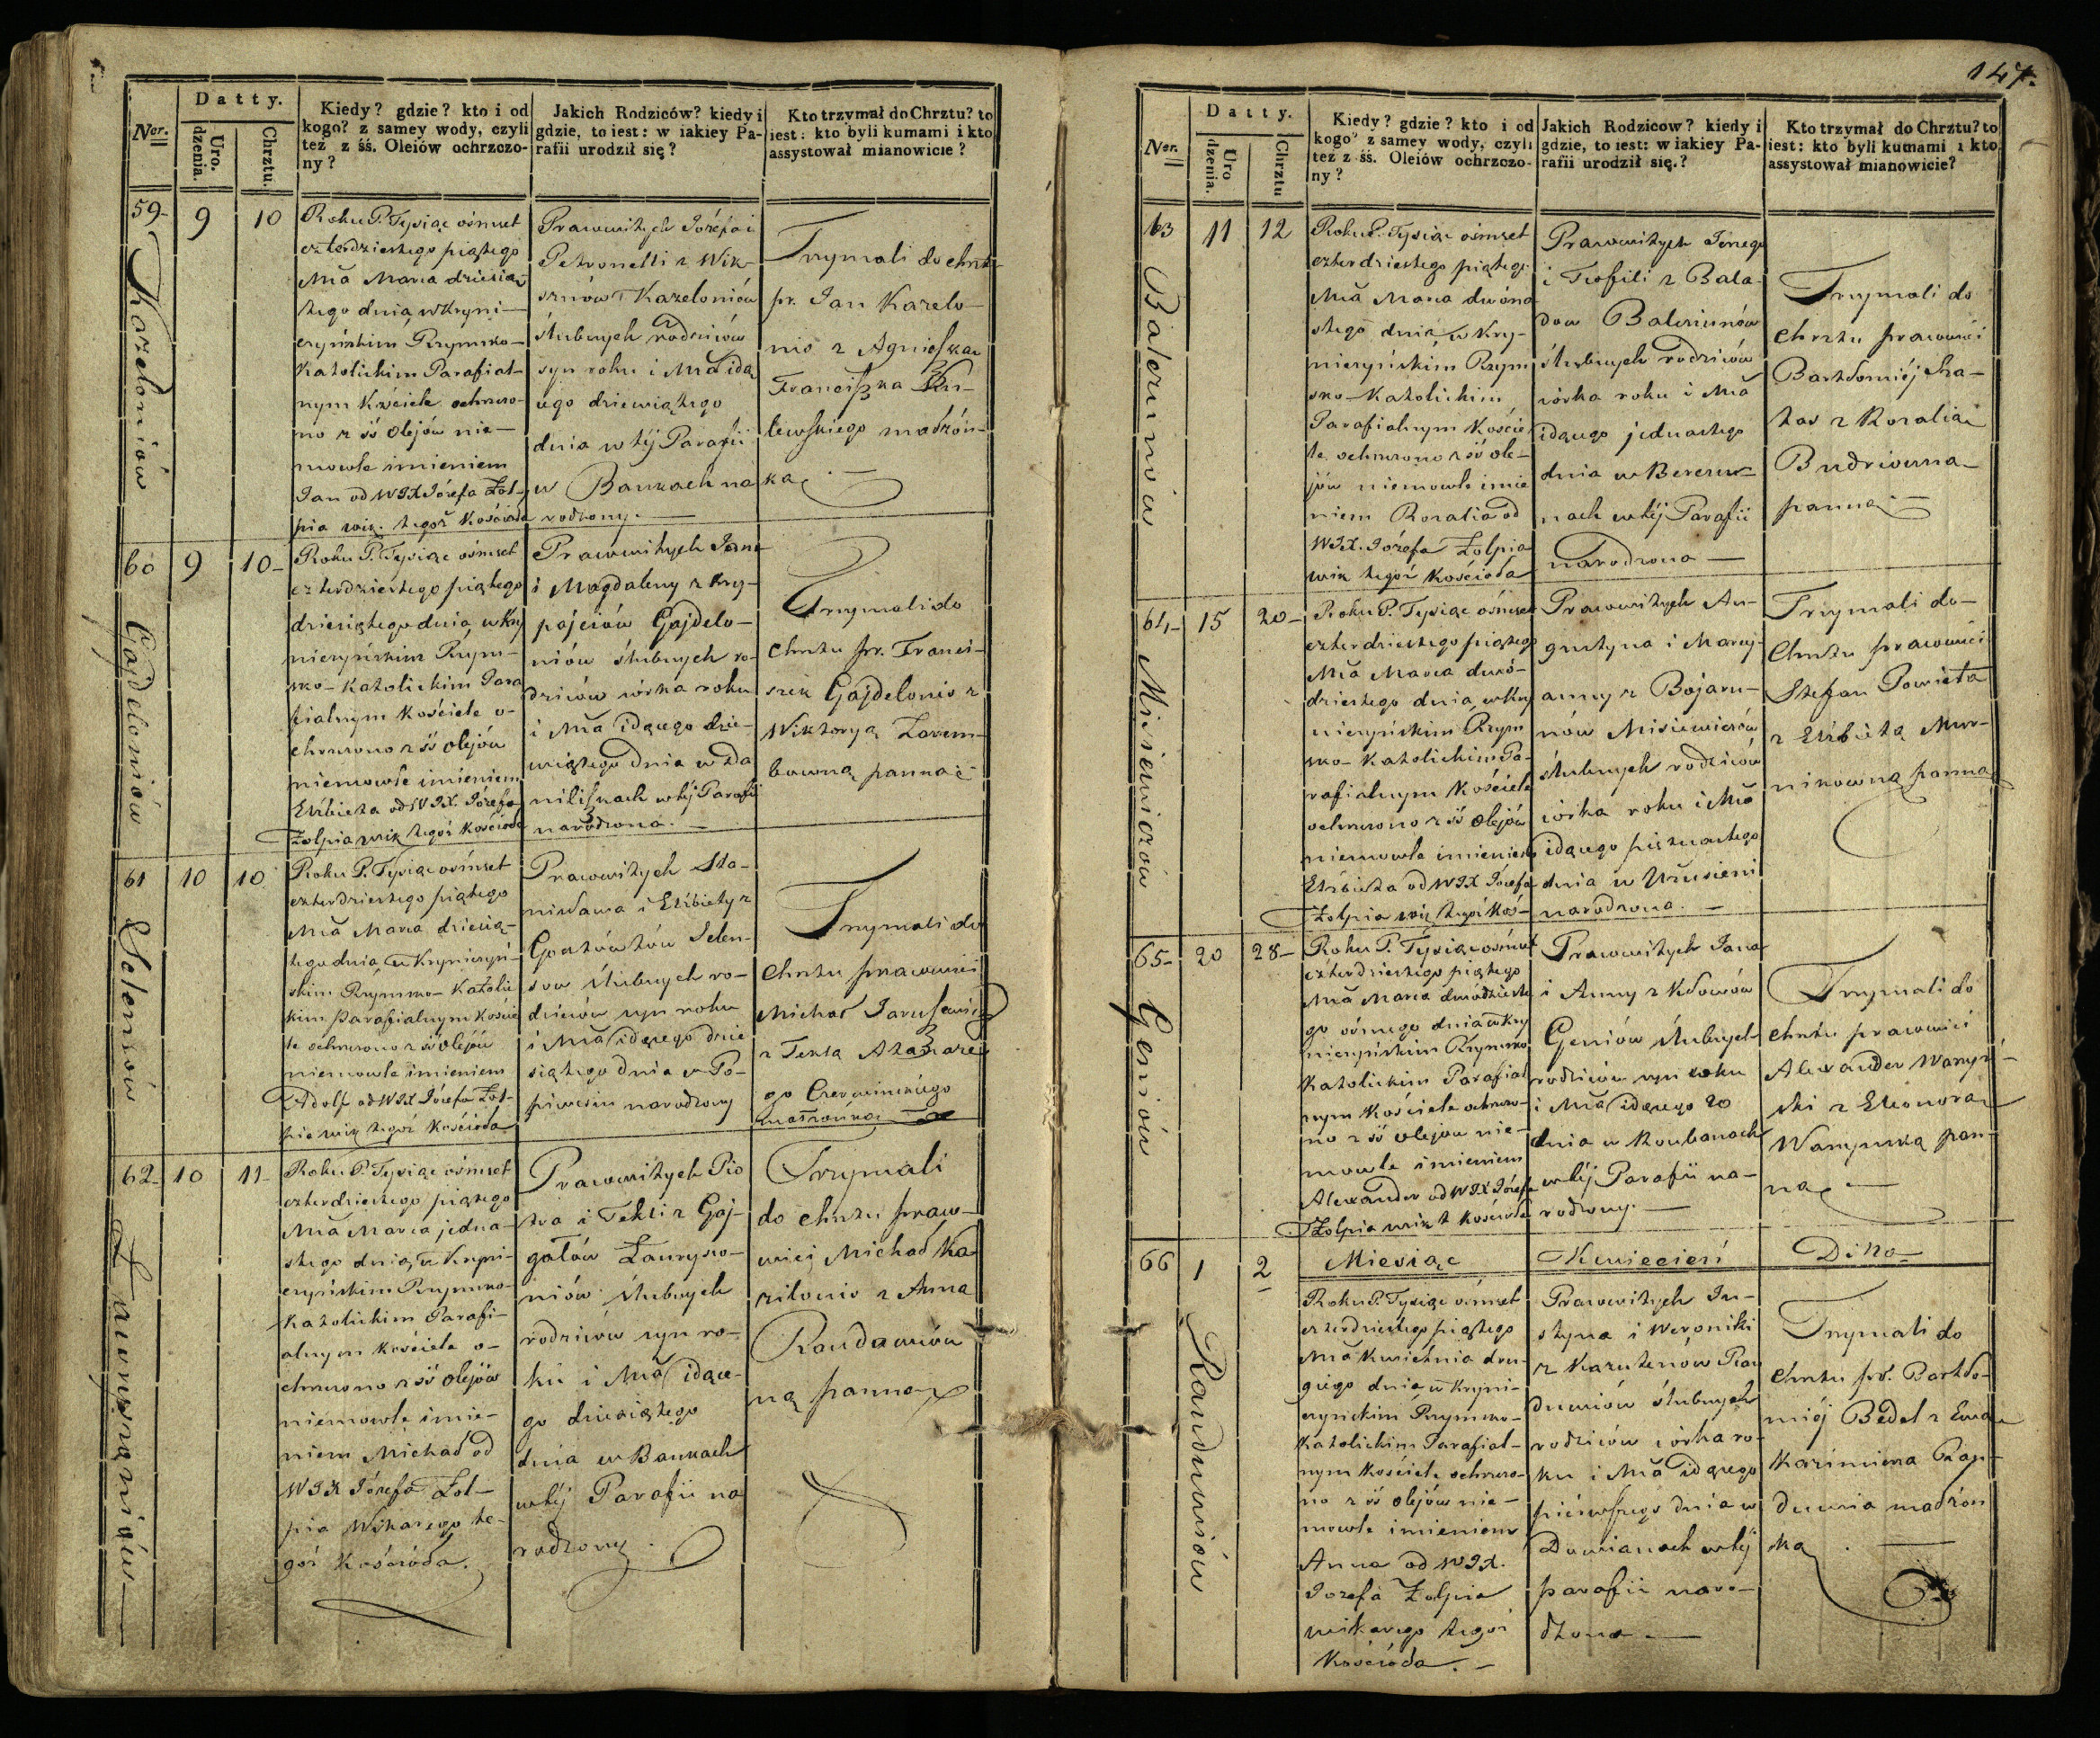 Datty.
Kiedy? gdzie? kto i od
kogo? z samey wody, czyli
też z śś. Oleiów ochrzczo-
ny?
Jakich Rodziców? kiedy i
gdzie, to iest: w iakiey Pa-
rafii urodził się?
Kto trzymał do Chrztu? to
iest: kto byli kumami i kto
assystował mianowicie?
Ner.
Uro.
dzenia.
Chrztu.
59
9
10
Kazeloniów
Roku P. Tysiąc ośmset
czterdziestego piątego
Mca Marca dziesią-
tego dnia, w Kryni-
czyńskim Rzymsko-
Katolickim Parafial-
nym Kościele ochrzczo-
no z śś Olejów nie-
mowle imieniem
Jan od WJX Józefa Żoł-
pia wik. tegoż Kościoła
Prawowitych Józefa i
Petronelli z Wik-
sznów Kazeloniów
ślubnych rodziców
syn roku i Mca idą-
cego dziewiątego
dnia w téj Parafii
w Bankach na
rodzony.
Trzymali do chrztu
pr. Jan Kazelo-
nis z Agnieszką
Franciszka
lewskiego małżon-
ką
60
9
10
Gajdeloniów
Roku P. Tysiąc ośmset
czterdziestego piątego
dziesiątego dnia, w Kry
niczyńskim Rzym-
sko-Katolickim Para
fialnym Kościele o-
chrzczono z śś olejów
niemowle imieniem
Elżbieta od WJX. Józefa
Żołpia wik tegoż Kościoła
Prawowitych Jana
i Magdaleny z Kry-
pajciów Gajdelo-
niów ślubnych ro-
dziców córka roku
i Mca idącego dzie-
wiątego dnia w Da
niliszkach w téj Parafii
narodzona.
Trzymali do
chrztu pr. Franci-
szek Gajdelonis z
Wiktoryą Zarem-
bówną panną
61
10
10
Selensów
Roku P. Tysiąc ośmset
czterdziestego piątego
Mca Marca dziesią-
tego dnia, w Kryniczyń-
skim Rzymsko-Katolic
kim Parafialnym Koście
le ochrzczono z śś olejów
niemowle imieniem
Adolf od WJX Józefa Żoł-
pia wik tegoż Kościoła
Prawowitych Sta-
nisława i Elżbiety z
Gontowtów Selen-
sow ślubnych ro-
dziców syn roku
i Mca idącego dzie
siątego dnia w Po-
piwesiu narodzony
Trzymali do
chrztu prawowici
Michał Jarusewicz
z Teklą Azamare-
go Czerwinskiego
małżonką
62
10
11
Ławrynaniców
Roku P. Tysiąc ośmset
czterdziestego piątego
Mca Marca jedna-
stego dnia, w Kryni-
czyńskim Rzymsko-
Katolickim Parafi-
alnym Kościele o-
chrzczono z śś olejów
niemowle imie-
niem Michał od
WJX Józefa Żoł-
pia Wikarego te-
goż Kościoła.
Prawowitych Pio
tra i Tekli z Gaj-
gałów Ławrysko-
niów ślubnych
rodziców syn ro-
ku i Mca idące-
go dziesiątego
dnia w Bankach
w téj Parafii na
rodzony.
Trzymali
do chrztu praw-
wici Michał Ka
zilonis z Anną
Raudaniów
ną panną
147.
Datty.
Kiedy? gdzie? kto i od
kogo? z samey wody, czyli
też z śś. Oleiów ochrzczo-
ny?
Jakich Rodziców? kiedy i
gdzie, to iest: w iakiey Pa-
rafii urodził się.?
Kto trzymał do Chrztu? to
iest: kto byli kumami i kto
assystował mianowicie?
Ner.
Uro
dzenia.
Chrztu
63
11
12
Balczunów
Roku P. Tysiąc ośmset
czterdziestego piątego
Mca Marca dwóna
stego dnia, w Kry-
niczyńskim Rzym
sko-Katolickim
Parafialnym Koście
le ochrzczono z śś ole-
jów niemowle imie
niem Rozalia od
WJX. Józefa Żołpia
wik tegoż Kościoła
Prawowitych Jerzego
i Teofili z Bala-
dow Balczunów
ślubnych rodziców
córka roku i Mca
idącego jednastego
dnia w Berezw-
nach w téj Parafii
narodzona
Trzymali do
chrztu prawowici
Bartłomiéj Cha-
tas z Rozalią
Budriowna
panną
64
15
20
Misiewiczów
Roku P. Tysiąc ośmset
czterdziestego piątego
Mca Marca dwó-
dziestego dnia, w Kry
niczyńskim Rzym
sko-Katolickim Pa-
rafialnym Kościele
ochrzczono z śś Olejów
niemowle imieniem
Elżbieta od WJX Józefa
Żołpia wik tegoż Koś-
Prawowitych Au-
gustyna i Mary-
anny z Bojaru-
nów Misiewiczów
ślubnych rodziców
córka roku i Mca
idącego piętnastego
dnia w Użusieni
narodzona.
Trzymali do
Chrztu prawowici
Stefan Powieła
z Elżbietą Mur-
nikowną panną
65
20
28
Geniów
Roku P. Tysiąc ośmset
czterdziestego piątego
Mca Marca dwódzieste
go osmego dnia w Kry
niczyńskim Rzymsko
Katolickim Parafial
nym Kościele ochrzczo-
no z śś olejów nie-
mowle imieniem
Alexander od WJX Józefa
Żołpia wik t Kościoła
Prawowitych Jana
i Anny z Kłowów
Geniów ślubnych
rodziców syn roku
i Mca idącego 20
dnia w Roubanach
w téj Parafii na-
rodzony.
Trzymali do
chrztu prawowici
Alexander Waryń-
ski z Eleonorą
Waryńską pan-
ną
66
1
2
Raudwiów
Miesiąc
Kwiecień
Dito
Roku P. Tysiąc ośmset
czterdziestego piątego
Mca Kwietnia dru-
giego dnia, w Kryni-
czyńskim Rzymsko-
Katolickim Parafial-
nym Kościele ochrzczo-
no z śś olejów nie-
mowle imieniem
Anna od WJX.
Jozefa Żołpia
wikarego tegoż
Kościoła.
Prawowitych Ju-
styna i Weroniki
z Kazutenów Rau
duwiów ślubnych
rodziców córka ro-
ku i Mca idącego
piérwszego dnia w
Dawianach w téj
parafii naro-
dzona
Trzymali do
chrztu pr. Bartło-
miéj Bedel z Ewą
Kazimierza Rau-
duwia małżon
ką